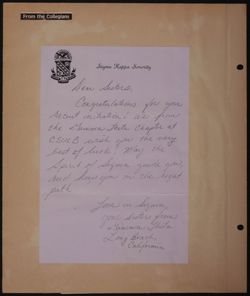 From the Collegians
Sigma Kappa Sorority
Dear Sisters,
Congratulations for your
recent initiation! We from
the Gamma Theta Chapter at
CSULB wish you the very
best of luck! May the
Spirit of Sigma guide you
and keep you on the right
path.
Love in Sigma,
your sisters from
Gamma Theta
Long Beach,
California